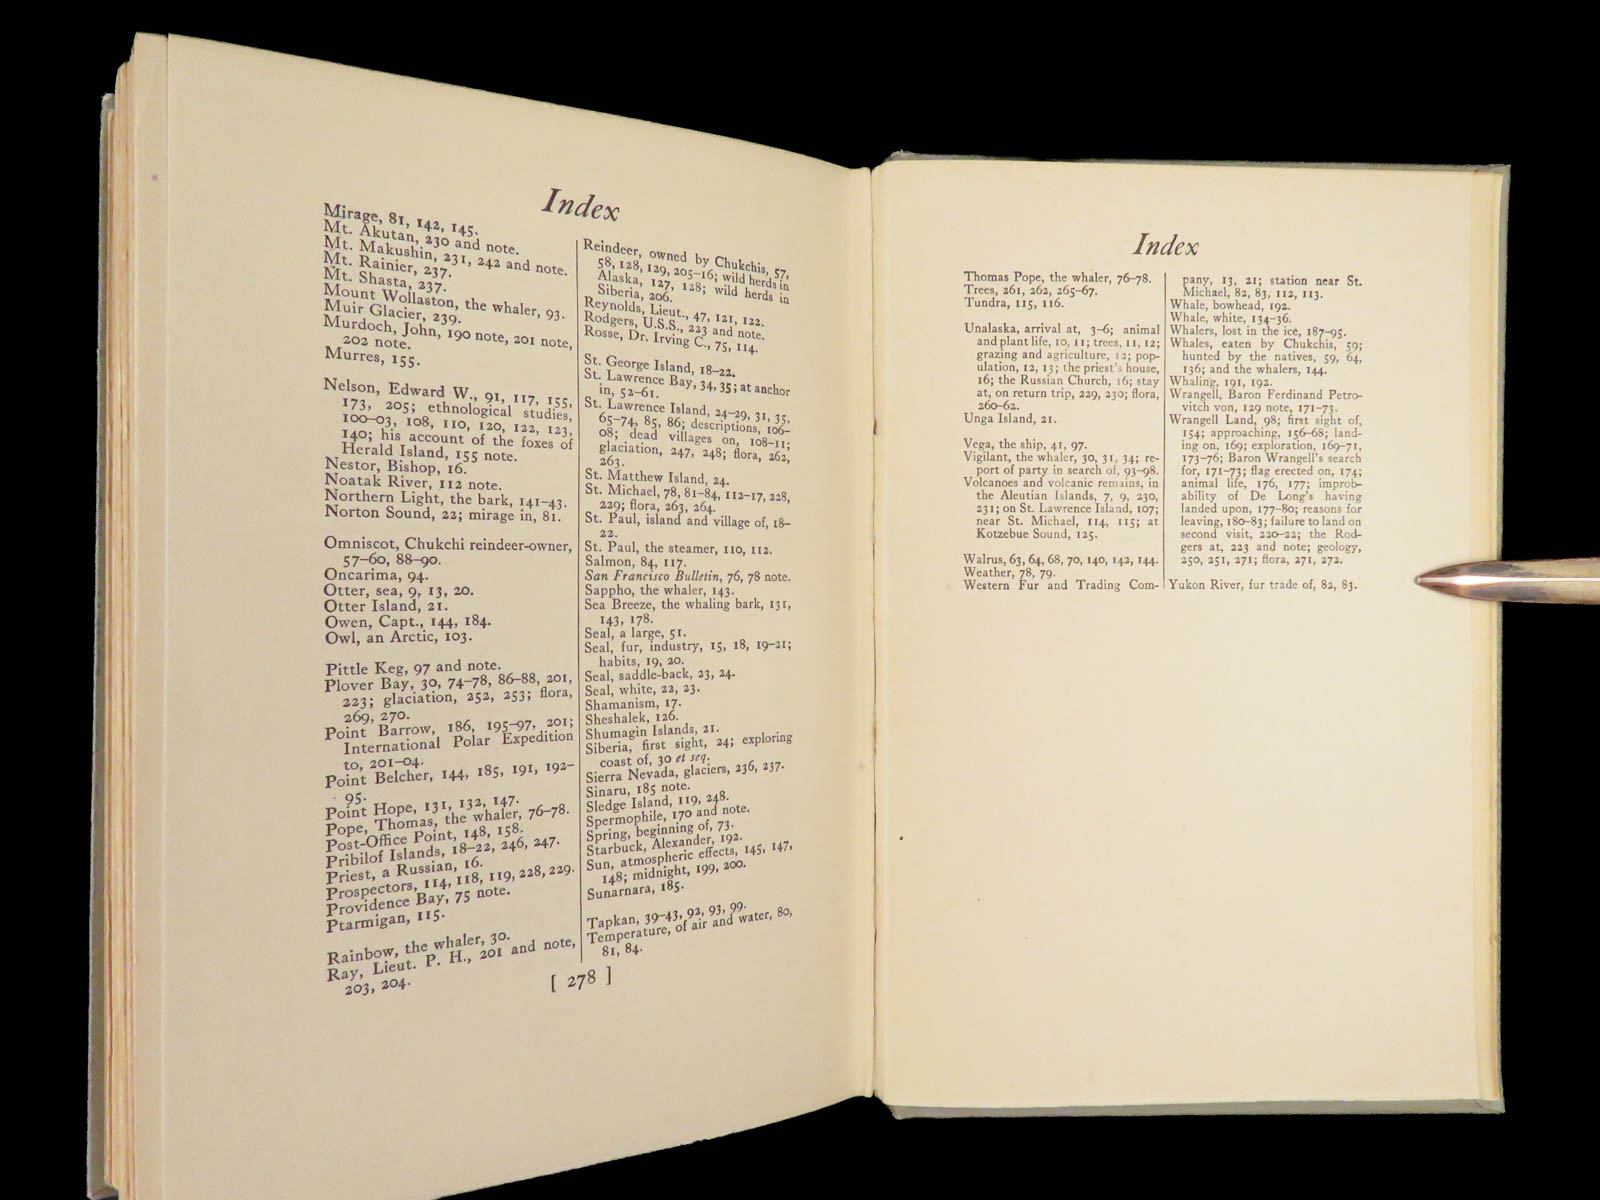 Index
Mirage, 81, 142, 145.
Mt. Akutan, 230 and note.
Mt. Makushin, 231, 242 and note.
Mt. Rainier, 237.
Mt. Shasta, 237.
Mount Wollaston, the whaler, 93.
Muir Glacier, 239.
Murdoch, John, 190 note, 201 note,
202 note.
Murres, 155.
Nelson, Edward W., 91, 117, 155,
173, 205; ethnological studies,
100-03, 108, 110, 120, 122, 123,
140; his account of the foxes of
Herald Island, 155 note.
Nestor, Bishop, 16.
Noatak River, 112 note.
Northern Light, the bark, 141-43.
Norton Sound, 22; mirage in, 81.
Omniscot, Chukchi reindeer-owner,
57-60, 88-90.
Oncarima, 94.
Otter, sea, 9, 13, 20.
Otter Island, 21.
Owen, Capt., 144, 184.
Owl, an Arctic, 103.
Pittle Keg, 97 and note.
Plover Bay, 30, 74-78, 86-88, 201,
223; glaciation, 252, 253; flora,
269, 270.
Point Barrow, 186, 195-97, 201;
International Polar Expedition
to, 201-04.
Point Belcher, 144, 185, 191, 192-
95.
Point Hope, 131, 132, 147.
Pope, Thomas, the whaler, 76-78.
Post-Office Point, 148, 158.
Pribilof Islands, 18-22, 246, 247.
Priest, a Russian, 16.
Prospectors, 114, 118, 119, 228, 229.
Providence Bay, 75 note.
Ptarmigan, 115.
Rainbow, the whaler, 30.
Ray, Lieut. P. H., 201 and note,
203, 204.
Reindeer, owned by Chukchis, 57,
58, 128, 129, 205-16; wild herds in
Alaska, 127, 128; wild herds in
Siberia, 206.
Reynolds, Lieut., 47, 121, 122.
Rodgers, U.S.S., 223 and note.
Rosse, Dr. Irving C., 75, 114.
St. George Island, 18-22.
St. Lawrence Bay, 34, 35; at anchor
in, 52-61.
St. Lawrence Island, 24-29, 31, 35,
65-74, 85, 86; descriptions, 106-
08; dead villages on, 108-11;
glaciation, 247, 248; flora, 262,
263.
St. Matthew Island, 24.
St. Michael, 78, 81-84, 112-17, 228,
229; flora, 263, 264.
St. Paul, island and village of, 18-
22.
St. Paul, the steamer, 110, 112.
Salmon, 84, 117.
San Francisco Bulletin, 76, 78 note.
Sappho, the whaler, 143.
Sea Breeze, the whaling bark, 131,
143, 178.
Seal, a large, 51.
Seal, fur, industry, 15, 18, 19-21;
habits, 19, 20.
Seal, saddle-back, 23, 24.
Seal, white, 22, 23.
Shamanism, 17.
Sheshalek, 126.
Shumagin Islands, 21.
Siberia, first sight, 24; exploring
coast of, 30 et seq.
Sierra Nevada, glaciers, 236, 237.
Sinaru, 185 note.
Sledge Island, 119, 248.
Spermophile, 170 and note.
Spring, beginning of, 73.
Starbuck, Alexander, 192.
Sun, atmospheric effects, 145, 147,
148; midnight, 199, 200.
Sunarnara, 185.
Tapkan, 39-43, 92, 93, 99.
Temperature, of air and water, 80,
81, 84.
[ 278 ]
Index
Thomas Pope, the whaler, 76-78.
Trees, 261, 262, 265-67.
Tundra, 115, 116.
Unalaska, arrival at, 3-6; animal
and plant life, 10, 11; trees, 11, 12;
grazing and agriculture, 12; pop-
ulation, 12, 13; the priest's house,
16; the Russian Church, 16; stay
at, on return trip, 229, 230; flora,
260-62.
Unga Island, 21.
Vega, the ship, 41, 97.
Vigilant, the whaler, 30, 31, 34; re-
port of party in search of, 93-98.
Volcanoes and volcanic remains, in
the Aleutian Islands, 7, 9, 230,
231; on St. Lawrence Island, 107;
near St. Michael, 114, 115; at
Kotzebue Sound, 125.
Walrus, 63, 64, 68, 70, 140, 142, 144.
Weather, 78, 79.
Western Fur and Trading Com-
pany, 13, 21; station near St.
Michael, 82, 83, 112, 113.
Whale, bowhead, 192.
Whale, white, 134-36.
Whalers, lost in the ice, 187-95.
Whales, eaten by Chukchis, 59;
hunted by the natives, 59, 64,
136; and the whalers, 144.
Whaling, 191, 192.
Wrangell, Baron Ferdinand Petro-
vitch von, 129 note, 171-73.
Wrangell Land, 98; first sight of,
154; approaching, 156-68; land-
ing on, 169; exploration, 169-71,
173-76; Baron Wrangell's search
for, 171-73; flag erected on, 174;
animal life, 176, 177; improb-
ability of De Long's having
landed upon, 177-80; reasons for
leaving, 180-83; failure to land on
second visit, 220-22; the Rod-
gers at, 223 and note; geology,
250, 251, 271; flora, 271, 272.
Yukon River, fur trade of, 82, 83.